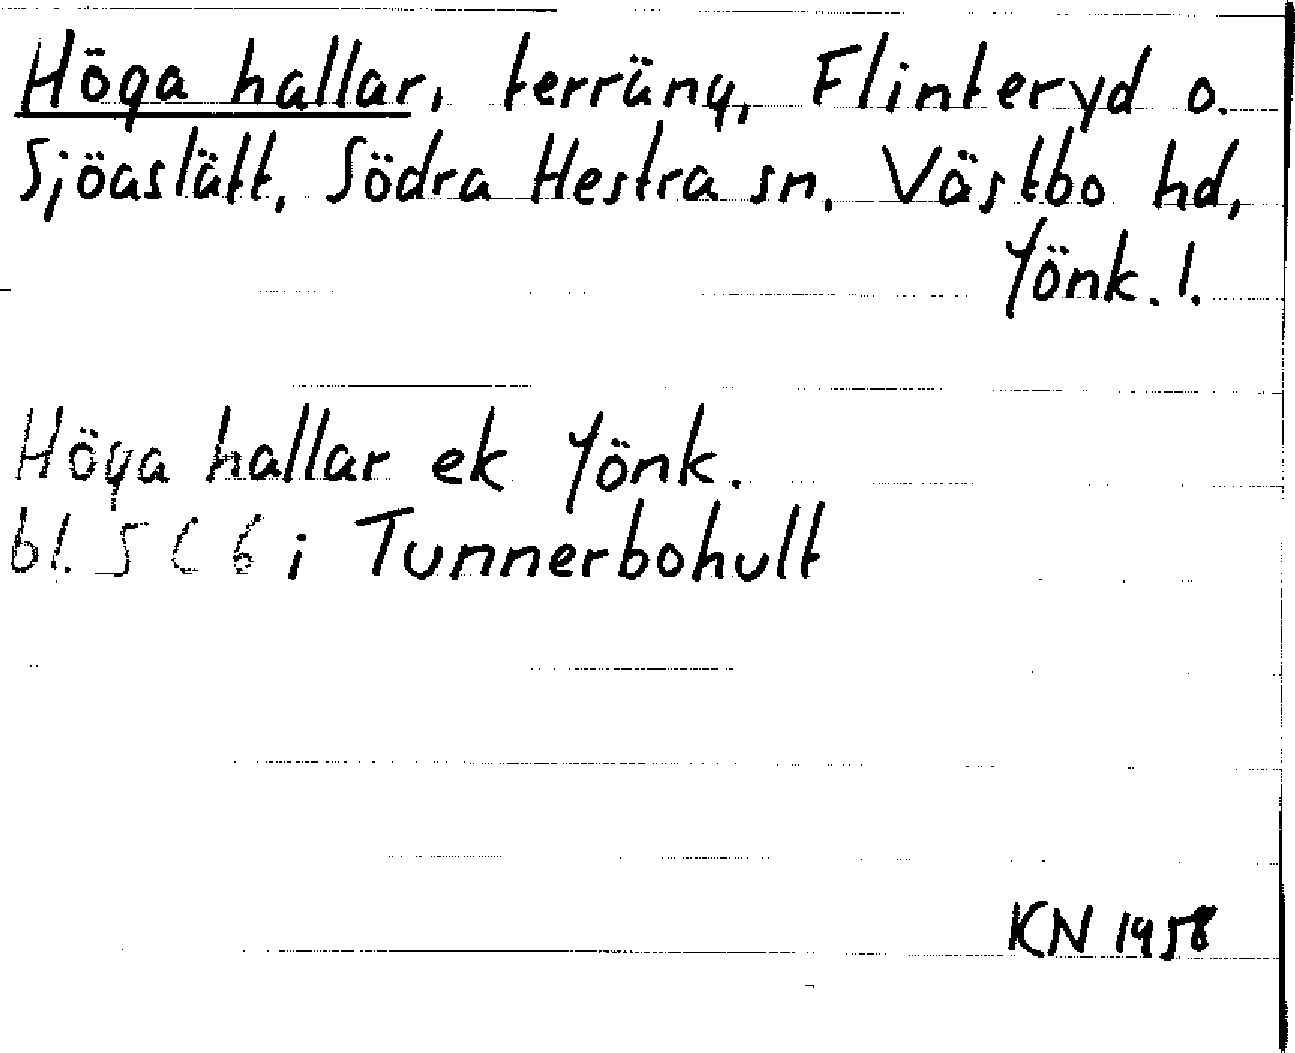 Höga hallar, terräng, Flinteryd o.
Sjöaslätt, Södra Hestra sn. Västbo hd,
Jönk. l.
Höga hallar ek Jönk.
bl. 5 C 6 i Tunnerbohult
KN 1958